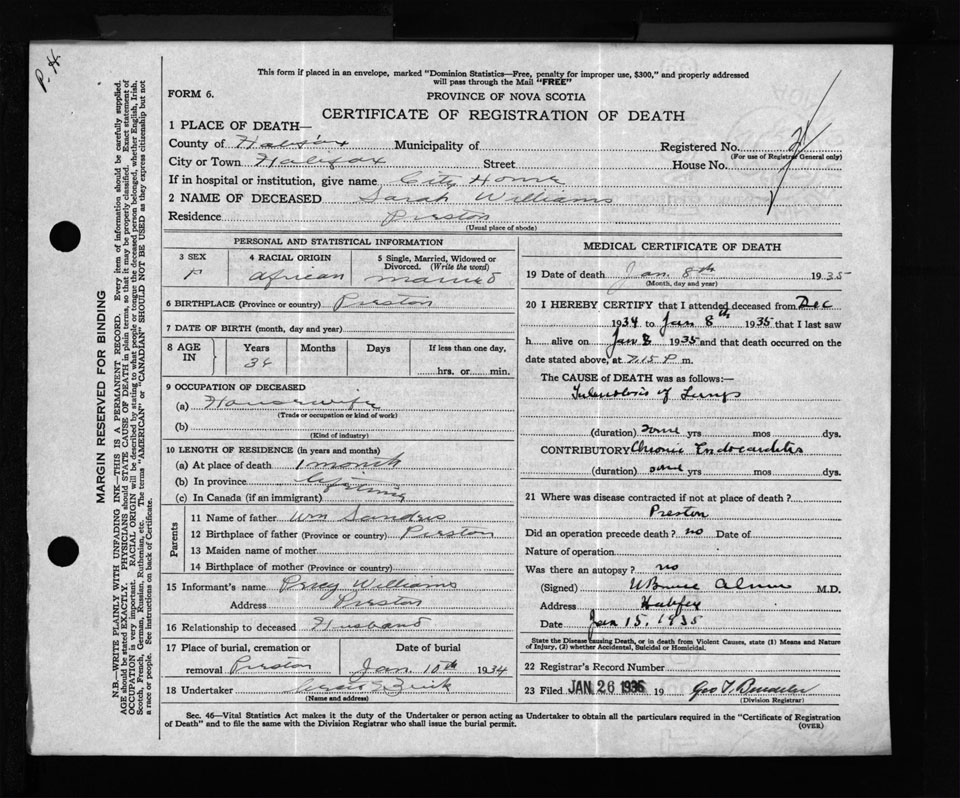 P. H
This form if placed in an envelope, marked "Dominion Statistics—Free, penalty for improper use, $300," and properly addressed
will pass through the Mail "FREE"
FORM 6.
PROVINCE OF NOVA SCOTIA
CERTIFICATE OF REGISTRATION OF DEATH
1 PLACE OF DEATH—
County of Halifax Municipality of Registered No.
(For use of Registrar General only)
City or Town Halifax Street House No.
If in hospital or institution, give name City Home
2 NAME OF DECEASED Sarah Williams
Residence Preston
(Usual place of abode)
PERSONAL AND STATISTICAL INFORMATION
3 SEX 4 RACIAL ORIGIN 5 Single, Married, Widowed or
Divorced. (Write the word)
African married
6 BIRTHPLACE (Province or country) Preston
7 DATE OF BIRTH (month, day and year)
8 AGE IN Years Months Days If less than one day,
hrs. or min.
9 OCCUPATION OF DECEASED
(a) Housewife
(Trade or occupation or kind of work)
(b)
(Kind of industry)
10 LENGTH OF RESIDENCE (in years and months)
(a) At place of death 1 month
(b) In province lifetime
(c) In Canada (if an immigrant)
Parents
11 Name of father Wm Sanders
12 Birthplace of father (Province or country) Preston
13 Maiden name of mother
14 Birthplace of mother (Province or country)
15 Informant's name Percy Williams
Address Preston
16 Relationship to deceased Husband
17 Place of burial, cremation or Date of burial
removal Preston Jan. 10th 1934
18 Undertaker
(Name and address)
MEDICAL CERTIFICATE OF DEATH
19 Date of death Jan. 8th 1935
(Month, day and year)
20 I HEREBY CERTIFY that I attended deceased from Dec
1934 to Jan 8th 1935 that I last saw
h alive on Jan 8 1935 and that death occurred on the
date stated above, at 7.15 P. m.
The CAUSE of DEATH was as follows:—
Tuberculosis of Lungs
(duration) some yrs mos dys.
CONTRIBUTORY Chronic Endocarditis
(duration) some yrs mos dys.
21 Where was disease contracted if not at place of death?
Preston
Did an operation precede death? no Date of
Nature of operation
Was there an autopsy? no
(Signed) M.D.
Address Halifax
Date Jan 15, 1935
State the Disease causing Death, or in death from Violent Causes, state (1) Means and Nature
of Injury, (2) whether Accidental, Suicidal or Homicidal.
22 Registrar's Record Number
23 Filed JAN 26 1935 19 Geo T.
(Division Registrar)
Sec. 46—Vital Statistics Act makes it the duty of the Undertaker or person acting as Undertaker to obtain all the particulars required in the "Certificate of Registration
of Death" and to file the same with the Division Registrar who shall issue the burial permit.
(OVER)
MARGIN RESERVED FOR BINDING
N.B.—WRITE PLAINLY WITH UNFADING INK—THIS IS A PERMANENT RECORD. Every item of information should be carefully supplied.
AGE should be stated EXACTLY. PHYSICIANS should STATE CAUSE OF DEATH in plain terms, so that it may be properly classified. Exact statement of
OCCUPATION is very important. RACIAL ORIGIN will be described by stating to what people or tongue the deceased person belonged, whether English, Irish,
Scotch, French, German, Russian, Ruthenian, etc. The terms "AMERICAN" or "CANADIAN" SHOULD NOT BE USED as they express citizenship but not
a race or people. See instructions on back of Certificate.